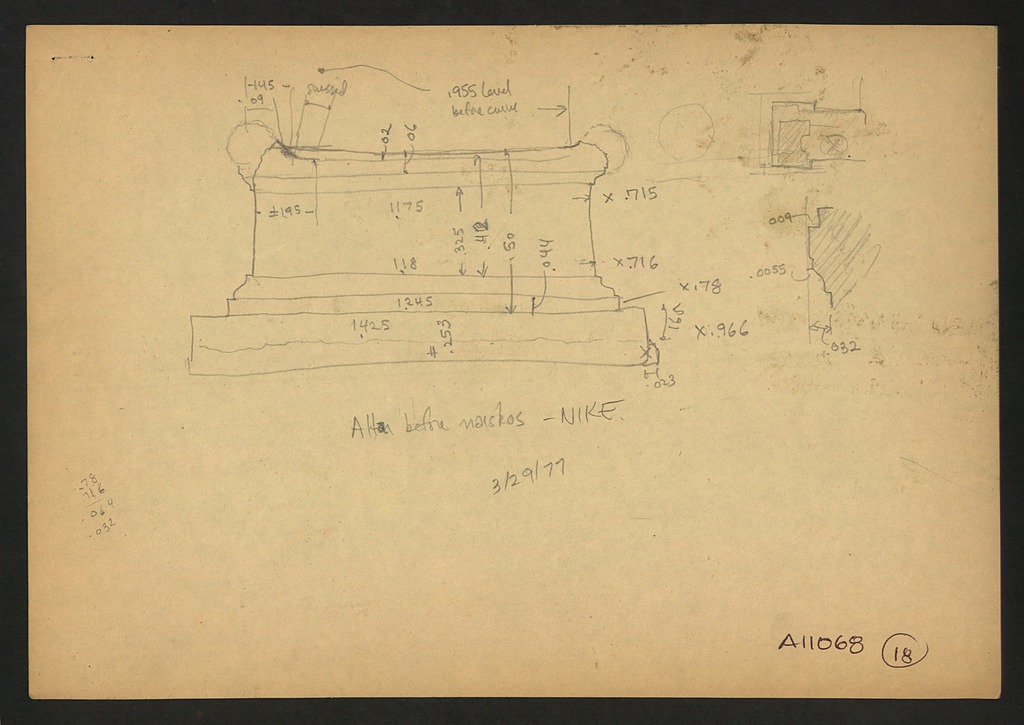 .145
.09
.955 level
before curve
.02
.06
±.195
1.175
.325
.42
.50
.044
x .715
1.18
x .716
x .78
1.245
1.425
# .253
.165
x .966
.023
.009
.0055
.032
Altar before naiskos - NIKE.
3/29/77
.78
.716
.064
.032
A11068 18